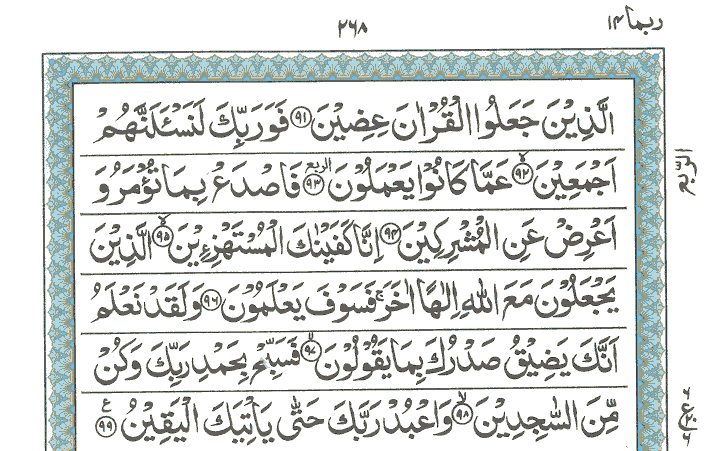 ربما ١٤
٢٦٨
الَّذِيْنَ جَعَلُوا الْقُرْاٰنَ عِضِيْنَ ﴿٩١﴾ فَوَرَبِّكَ لَنَسْـَٔلَنَّهُمْ
اَجْمَعِيْنَ ﴿٩٢﴾ۙ عَمَّا كَانُوْا يَعْمَلُوْنَ ﴿٩٣﴾ الربع فَاصْدَعْ بِمَا تُؤْمَرُ وَ
الربع
اَعْرِضْ عَنِ الْمُشْرِكِيْنَ ﴿٩٤﴾ اِنَّا كَفَيْنٰكَ الْمُسْتَهْزِءِيْنَ ﴿٩٥﴾ۙ الَّذِيْنَ
يَجْعَلُوْنَ مَعَ اللّٰهِ اِلٰهًا اٰخَرَ ۚ فَسَوْفَ يَعْلَمُوْنَ ﴿٩٦﴾ وَلَقَدْ نَعْلَمُ
اَنَّكَ يَضِيْقُ صَدْرُكَ بِمَا يَقُوْلُوْنَ ﴿٩٧﴾ۙ فَسَبِّحْ بِحَمْدِ رَبِّكَ وَكُنْ
مِّنَ السّٰجِدِيْنَ ﴿٩٨﴾ۙ وَاعْبُدْ رَبَّكَ حَتّٰى يَاْتِيَكَ الْيَقِيْنُ ﴿٩٩﴾ ع
٦
ع ٢٠
٦